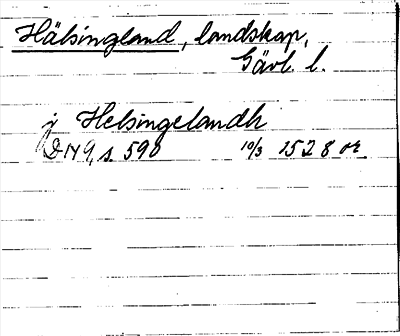 Hälsingland, landskap,
Gävl. l.
j Helsingelandh
DN 9, s. 590 10/3 1528 or.